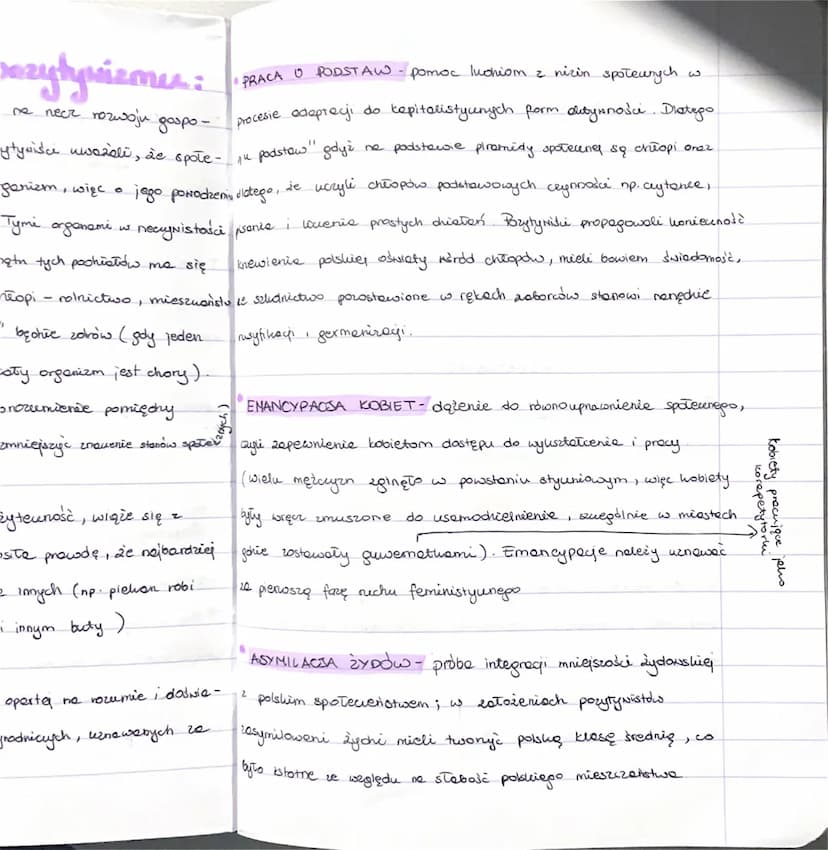 pozytywizmu:
na rzecz rozwoju gospo-
ytywiści uważali, że społe-
ganizm, więc o jego powodzeniu
Tymi organami w rzeczywistości
tych podziałów ma się
chłopi - rolnictwo, mieszczaństwo
" będzie zdrów (gdy jeden
cały organizm jest chory).
porozumienie pomiędzy
zmniejszyć znaczenie stanów społecz
użyteczność, wiąże się z
prawdę, że najbardziej
z innych (np. piekarz robi
i innym buty)
opartą na rozumie i doświa-
yrodniczych, uznawanych za
PRACA U PODSTAW - pomoc ludziom z nizin społecznych w
procesie adaptacji do kapitalistycznych form aktywności. Dlatego
„u podstaw" gdyż na podstawie piramidy społecznej są chłopi oraz
dlatego, że uczyli chłopów podstawowych czynności np. czytania,
pisania i liczenia prostych działań. Pozytywiści propagowali konieczność
krzewienia polskiej oświaty wśród chłopów, mieli bowiem świadomość,
że szkolnictwo pozostawione w rękach zaborców stanowi narzędzie
rusyfikacji i germanizacji.
EMANCYPACJA KOBIET - dążenie do równouprawnienia społecznego,
czyli zapewnienie kobietom dostępu do wykształcenia i pracy
(wielu mężczyzn zginęło w powstaniu styczniowym, więc kobiety
były wręcz zmuszone do usamodzielnienia, szczególnie w miastach
gdzie zostawały guwernatkami). Emancypację należy uznawać
za pierwszą fazę ruchu feministycznego
kobiety pracujące jako
korepetytorki
ASYMILACJA ŻYDÓW - próba integracji mniejszości żydowskiej
z polskim społeczeństwem; w założeniach pozytywistów
zasymilowani żydzi mieli tworzyć polską klasę średnią, co
było istotne ze względu na słabość polskiego mieszczaństwa